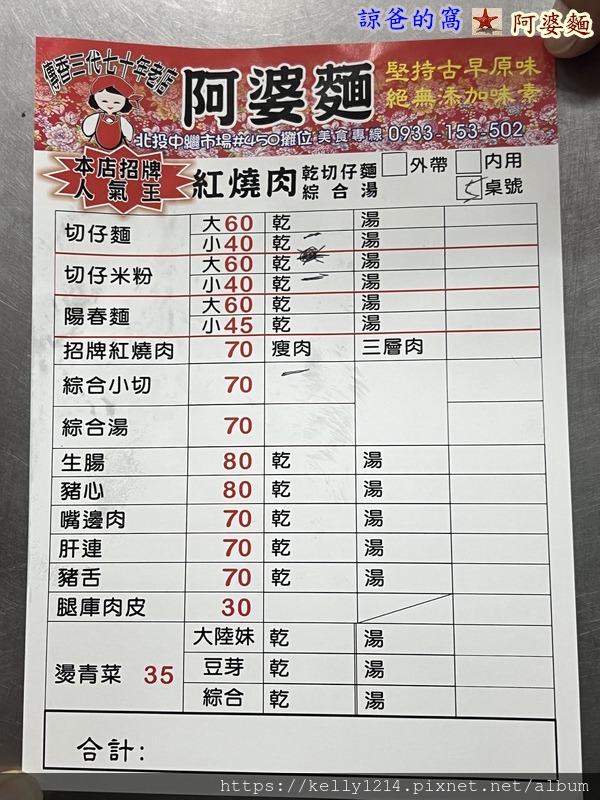 諒爸的窩 阿婆麵
傳香三代七十年老店
阿婆麵
堅持古早原味
絕無添加味素
北投中繼市場#450攤位 美食專線 0933-153-502
本店招牌
人氣王
紅燒肉 乾切仔麵
綜合湯
外帶 內用
5 桌號
切仔麵 大60 乾 湯
小40 乾 湯
切仔米粉 大60 乾 湯
小40 乾 湯
陽春麵 大60 乾 湯
小45 乾 湯
招牌紅燒肉 70 瘦肉 三層肉
綜合小切 70
綜合湯 70
生腸 80 乾 湯
豬心 80 乾 湯
嘴邊肉 70 乾 湯
肝連 70 乾 湯
豬舌 70 乾 湯
腿庫肉皮 30
燙青菜 35 大陸妹 乾 湯
豆芽 乾 湯
綜合 乾 湯
合計:
https://kelly1214.pixnet.net/album